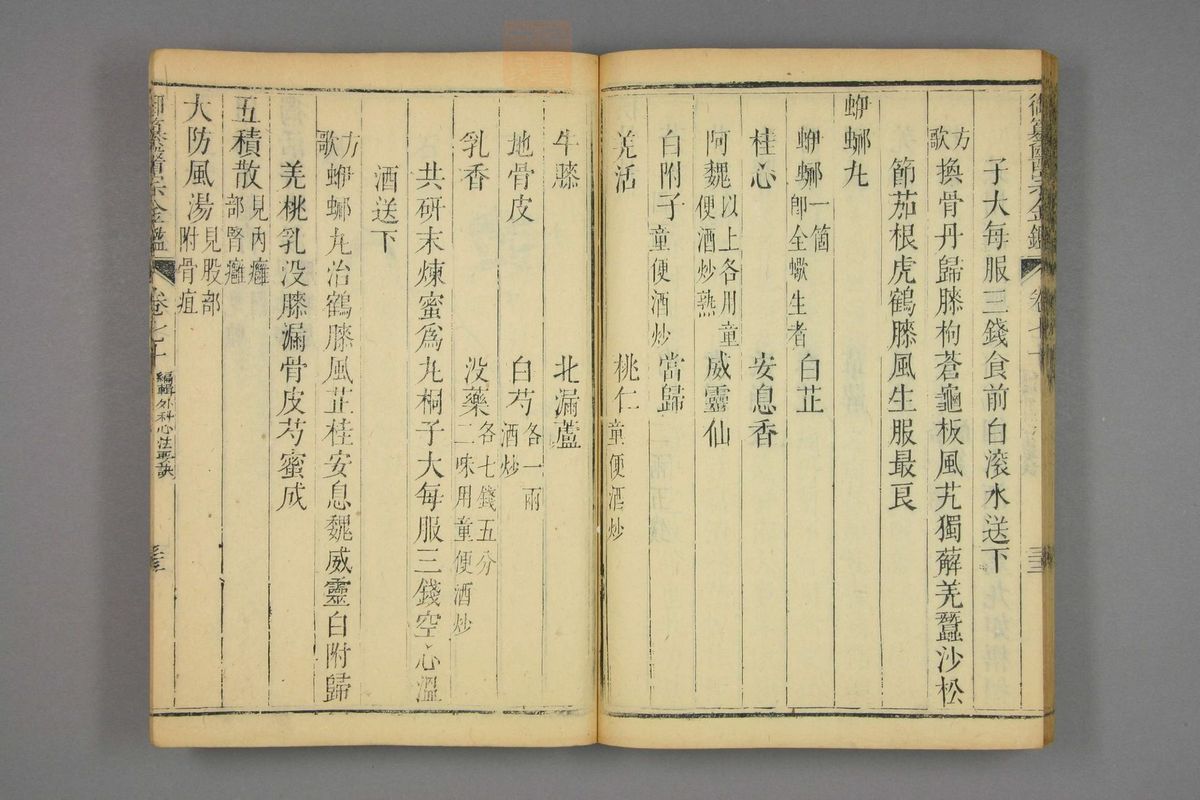 御纂醫宗金鑑 卷七十
子大每服三錢食前白滾水送下
方歌 換骨丹歸膝枸蒼龜板風艽獨薢羌蠶沙松
節茄根虎鶴膝風生服最良
螕螂丸
螕螂一箇卽全蠍生者 白芷
桂心 安息香
阿魏以上各用童便酒炒熟 威靈仙
白附子童便酒炒 當歸
羌活 桃仁童便酒炒
牛膝 北漏蘆
地骨皮 白芍各一兩酒炒
乳香 没藥各七錢五分二味用童便酒炒
共研末煉蜜爲丸桐子大每服三錢空心溫
酒送下
方歌 螕螂丸治鶴膝風芷桂安息魏威靈白附歸
羌桃乳没膝漏骨皮芍蜜成
五積散見內癰部腎癰
大防風湯見股部附骨疽
御纂醫宗金鑑 卷七十 編輯外科心法要訣